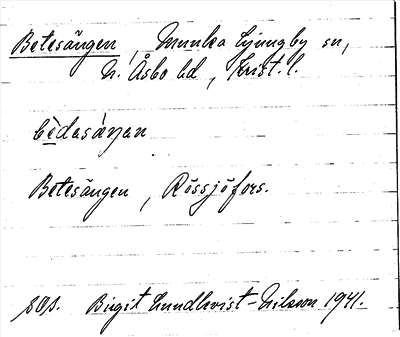 Betesängen, Munka Ljungby sn,
N. Åsbo hd, Krist. l.
bèdesàŋan
Betesängen, Rössjöfors.
SOS. Birgit Lundkvist-Nilsson 1941.